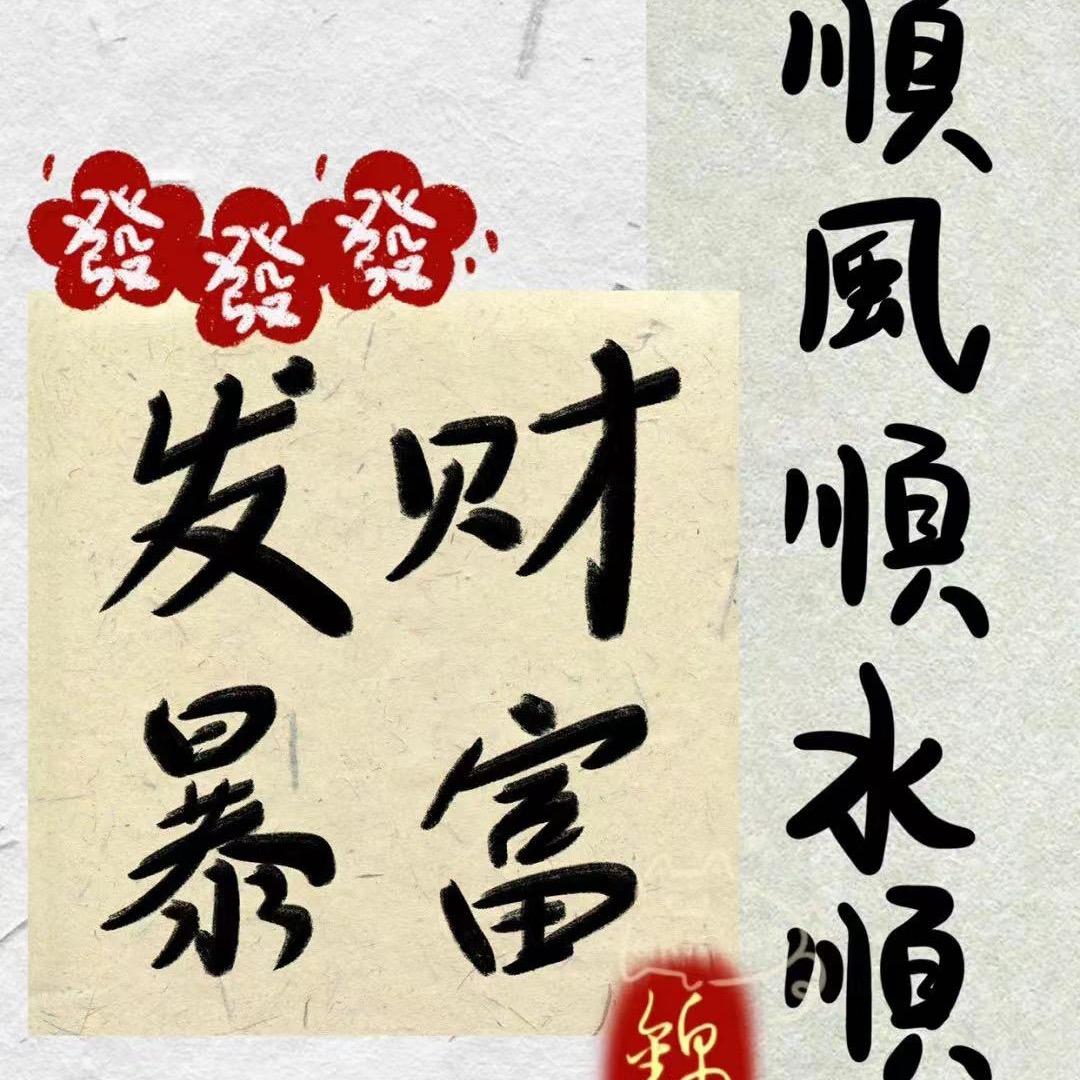 發發發
发财
暴富
順風順水順
錦